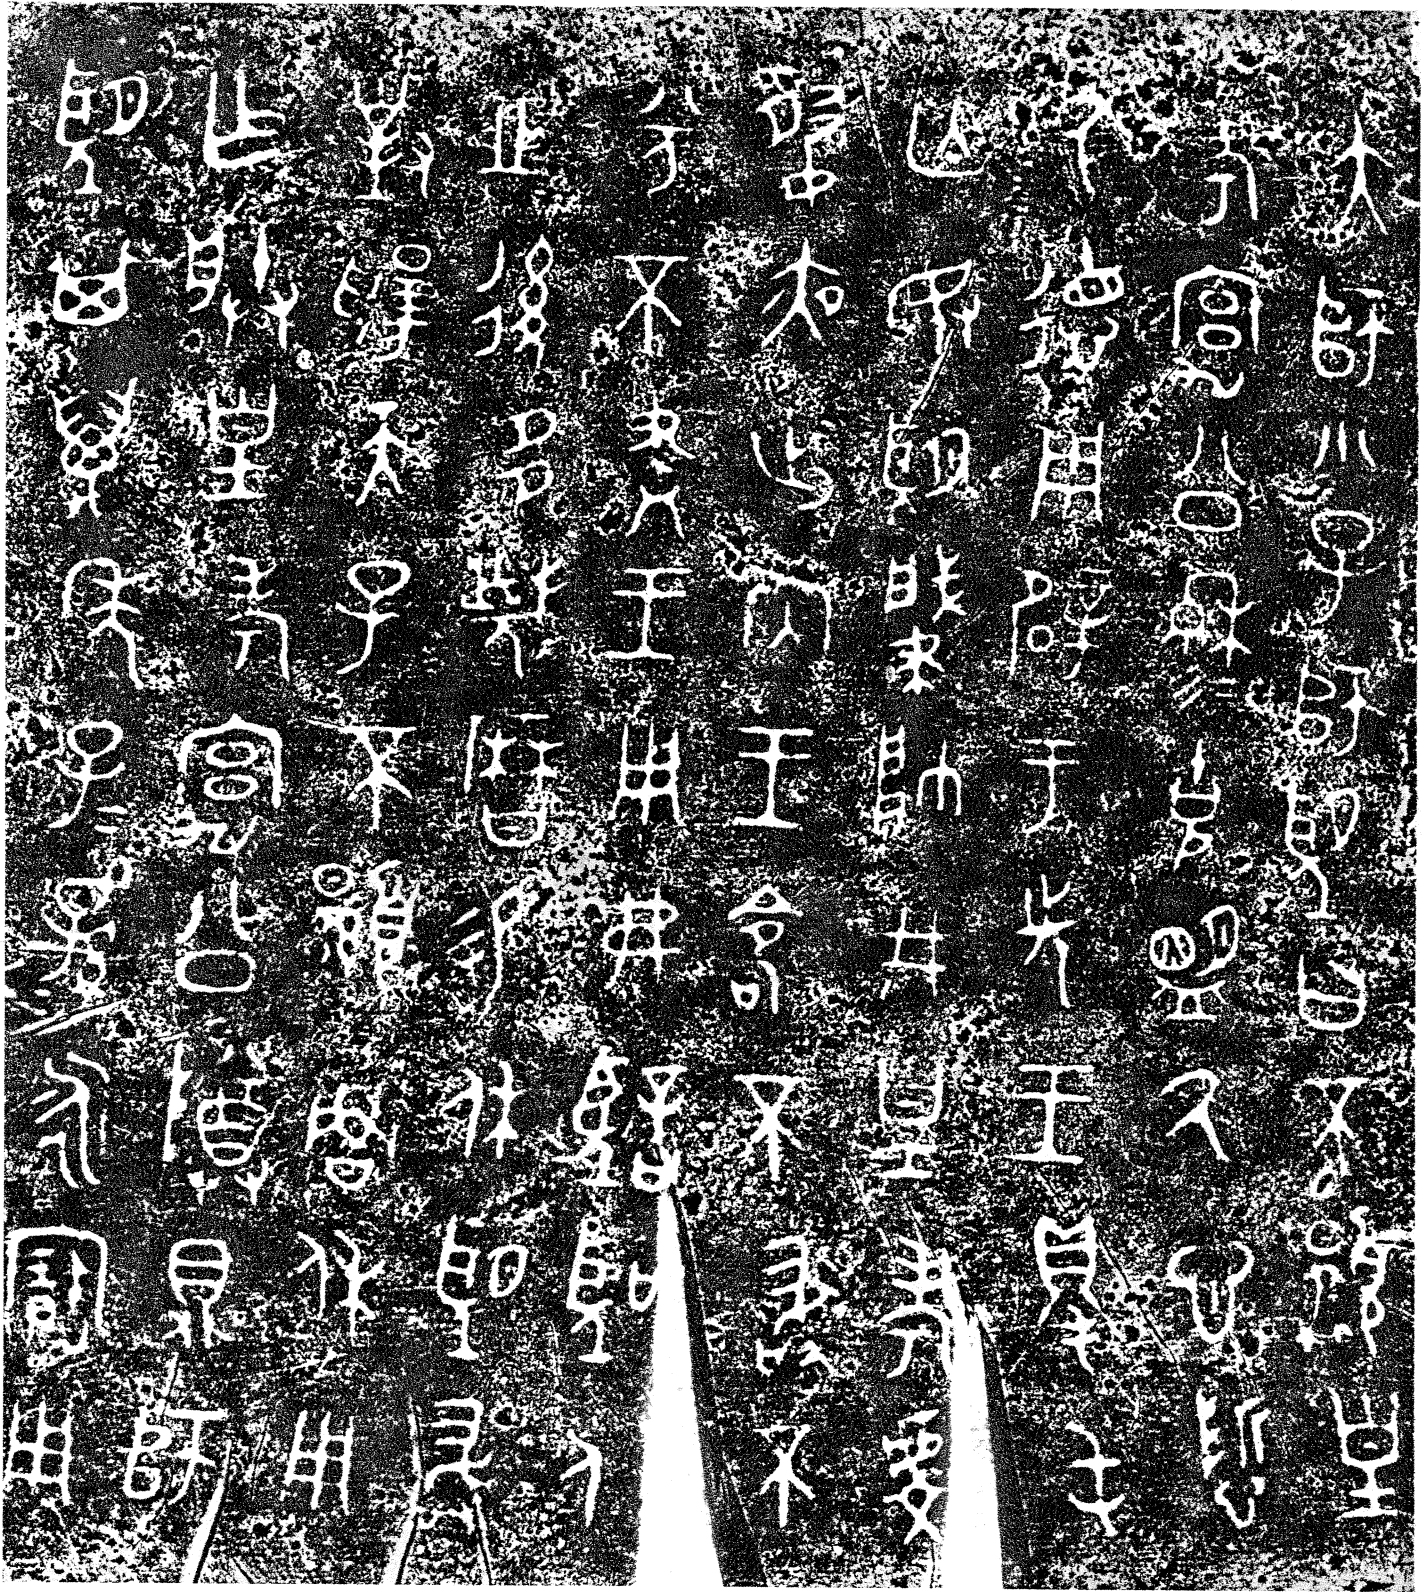 大師小子師望曰不顯皇
考宄公穆穆克盟氒心悊
氒德用辟于先王䙷屯
亡敃望肇帥井皇考虔
夙夜出內王命不敢不
分不王用弗聖人
之後多蔑曆易休望敢
對揚天子不顯魯休用
乍朕皇考宄公尊鼎師
望其萬年子子孫孫永寶用